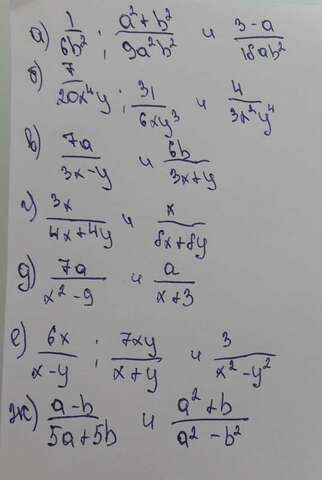 а) 1/(6b²) ; (a²+b²)/(9a²b²) и (3-a)/(18ab²)
б) 7/(20x⁴y) ; 31/(6xy³) и 4/(3x²y⁴)
в) 7a/(3x-y) и 6b/(3x+y)
г) 3x/(4x+4y) и x/(8x+8y)
д) 7a/(x²-9) и a/(x+3)
е) 6x/(x-y) ; 7xy/(x+y) и 3/(x²-y²)
ж) (a-b)/(5a+5b) и (a²+b)/(a²-b²)